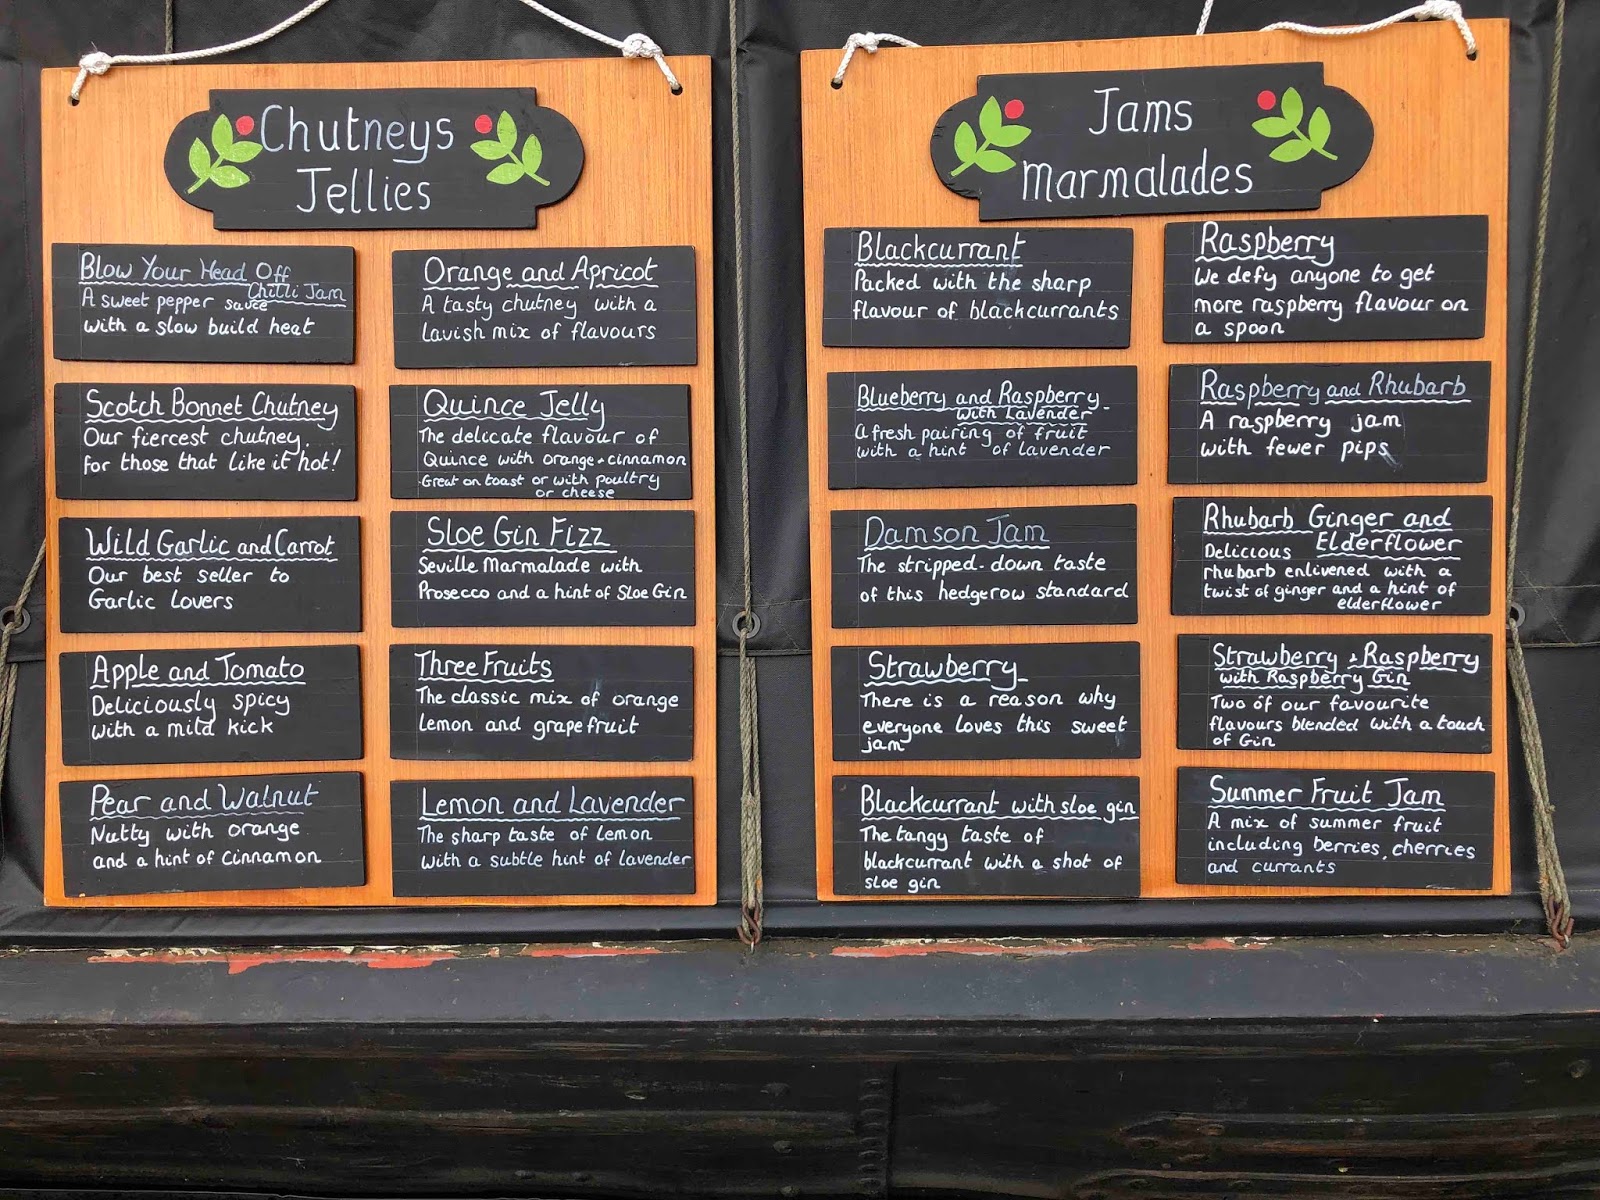 Chutneys
Jellies
Blow Your Head Off
Chilli Jam
A sweet pepper sauce
with a slow build heat
Scotch Bonnet Chutney
Our fiercest chutney.
for those that like it hot!
Wild Garlic and Carrot
Our best seller to
Garlic Lovers
Apple and Tomato
Deliciously spicy
with a mild kick
Pear and Walnut
Nutty with orange
and a hint of cinnamon
Orange and Apricot
A tasty chutney with a
lavish mix of flavours
Quince Jelly
The delicate flavour of
Quince with orange + cinnamon
Great on toast or with poultry
or cheese
Sloe Gin Fizz
Seville Marmalade with
Prosecco and a hint of Sloe Gin
Three Fruits
The classic mix of orange
lemon and grapefruit
Lemon and Lavender
The sharp taste of lemon
with a subtle hint of lavender
Jams
Marmalades
Blackcurrant
Packed with the sharp
flavour of blackcurrants
Blueberry and Raspberry
with Lavender
A fresh pairing of fruit
with a hint of lavender
Damson Jam
The stripped-down taste
of this hedgerow standard
Strawberry
There is a reason why
everyone loves this sweet
jam
Blackcurrant with sloe gin
The tangy taste of
blackcurrant with a shot of
sloe gin
Raspberry
We defy anyone to get
more raspberry flavour on
a spoon
Raspberry and Rhubarb
A raspberry jam
with fewer pips
Rhubarb Ginger and
Elderflower
Delicious
rhubarb enlivened with a
twist of ginger and a hint of
elderflower
Strawberry + Raspberry
with Raspberry Gin
Two of our favourite
flavours blended with a touch
of Gin
Summer Fruit Jam
A mix of summer fruit
including berries, cherries
and currants